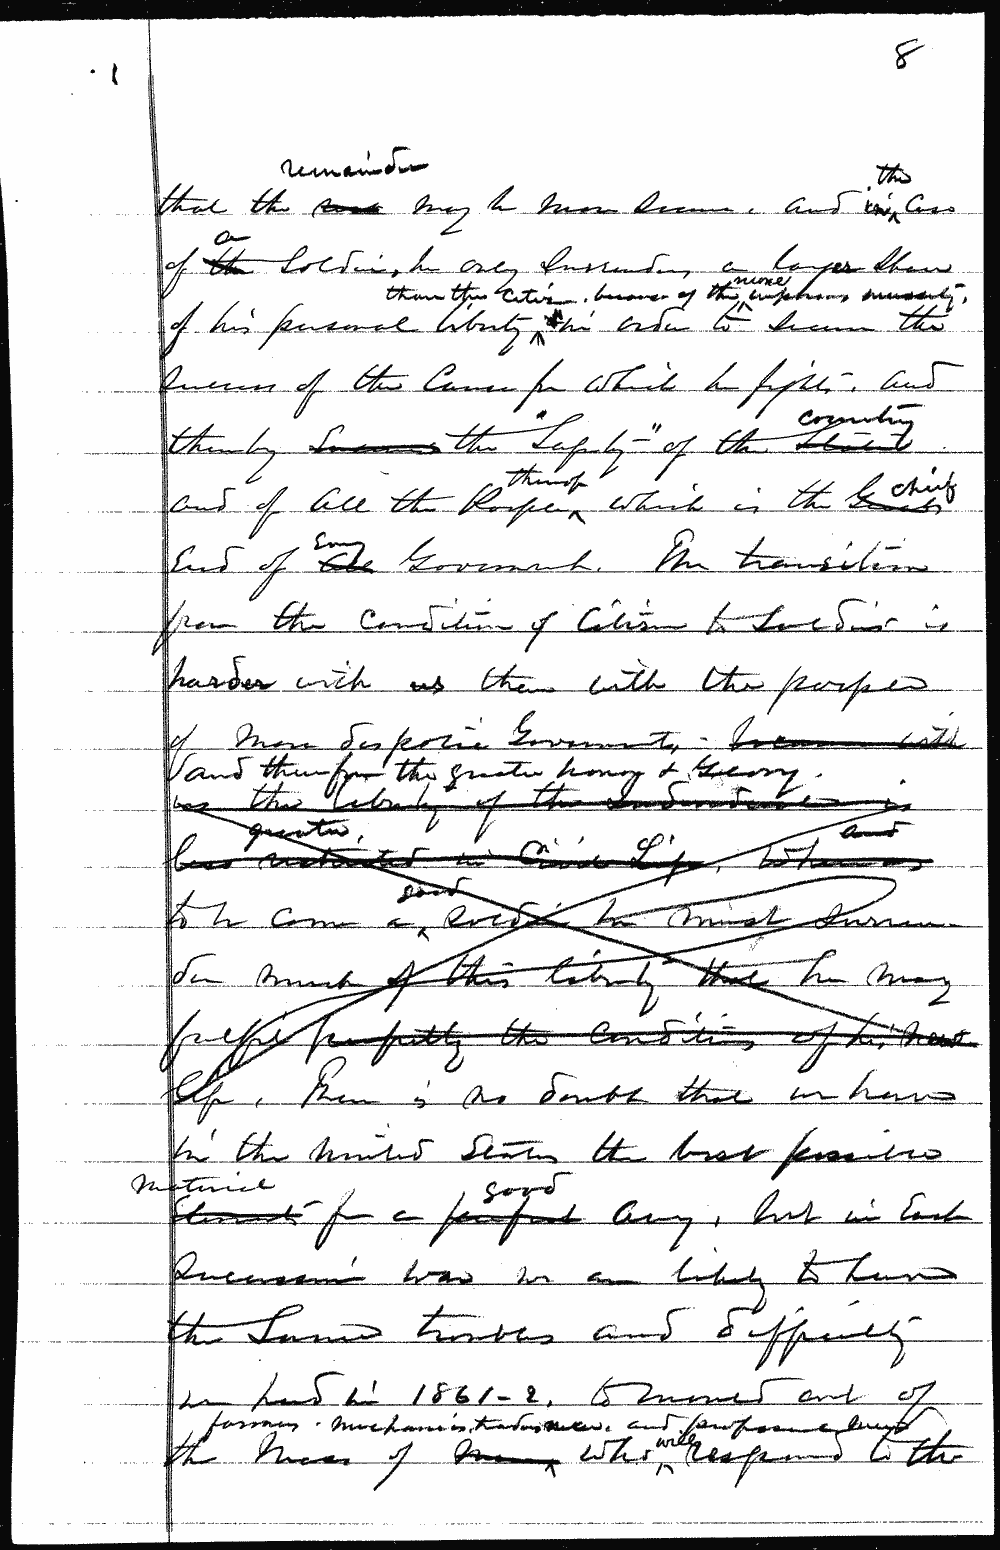 8
1
remainder
the
that the rest may be more secure. and in case
a
of the Soldier, he only surrenders a larger share
than the citizen. because of the more imperious necessity.
of his personal liberty, in order to secure the
success of the Cause for which he fights. and
country
thereby the "Safety" of the State
thereof chief
and of all the People which is the
every
End of all Government. The transition
from the condition of Citizen to Soldier is
harder with us than with the people
of more despotic Governments, - because with
and therefore the greater honor & Glory.
us the liberty of the Individual is
greater, and
less restricted in Civil Life, whereas
good
to become a soldier he must surren-
der much of this liberty that he may
fulfil perfectly the conditions of his new
life. There is no doubt that we have
in the United States the best possible
material good
Elements for a perfect Army, but in Each
successive war we are likely to have
the same troubles and difficulty
we had in 1861-2. to mould out of
farmers. mechanics, tradesmen. and professional men
will
the Mass of men who respond to the